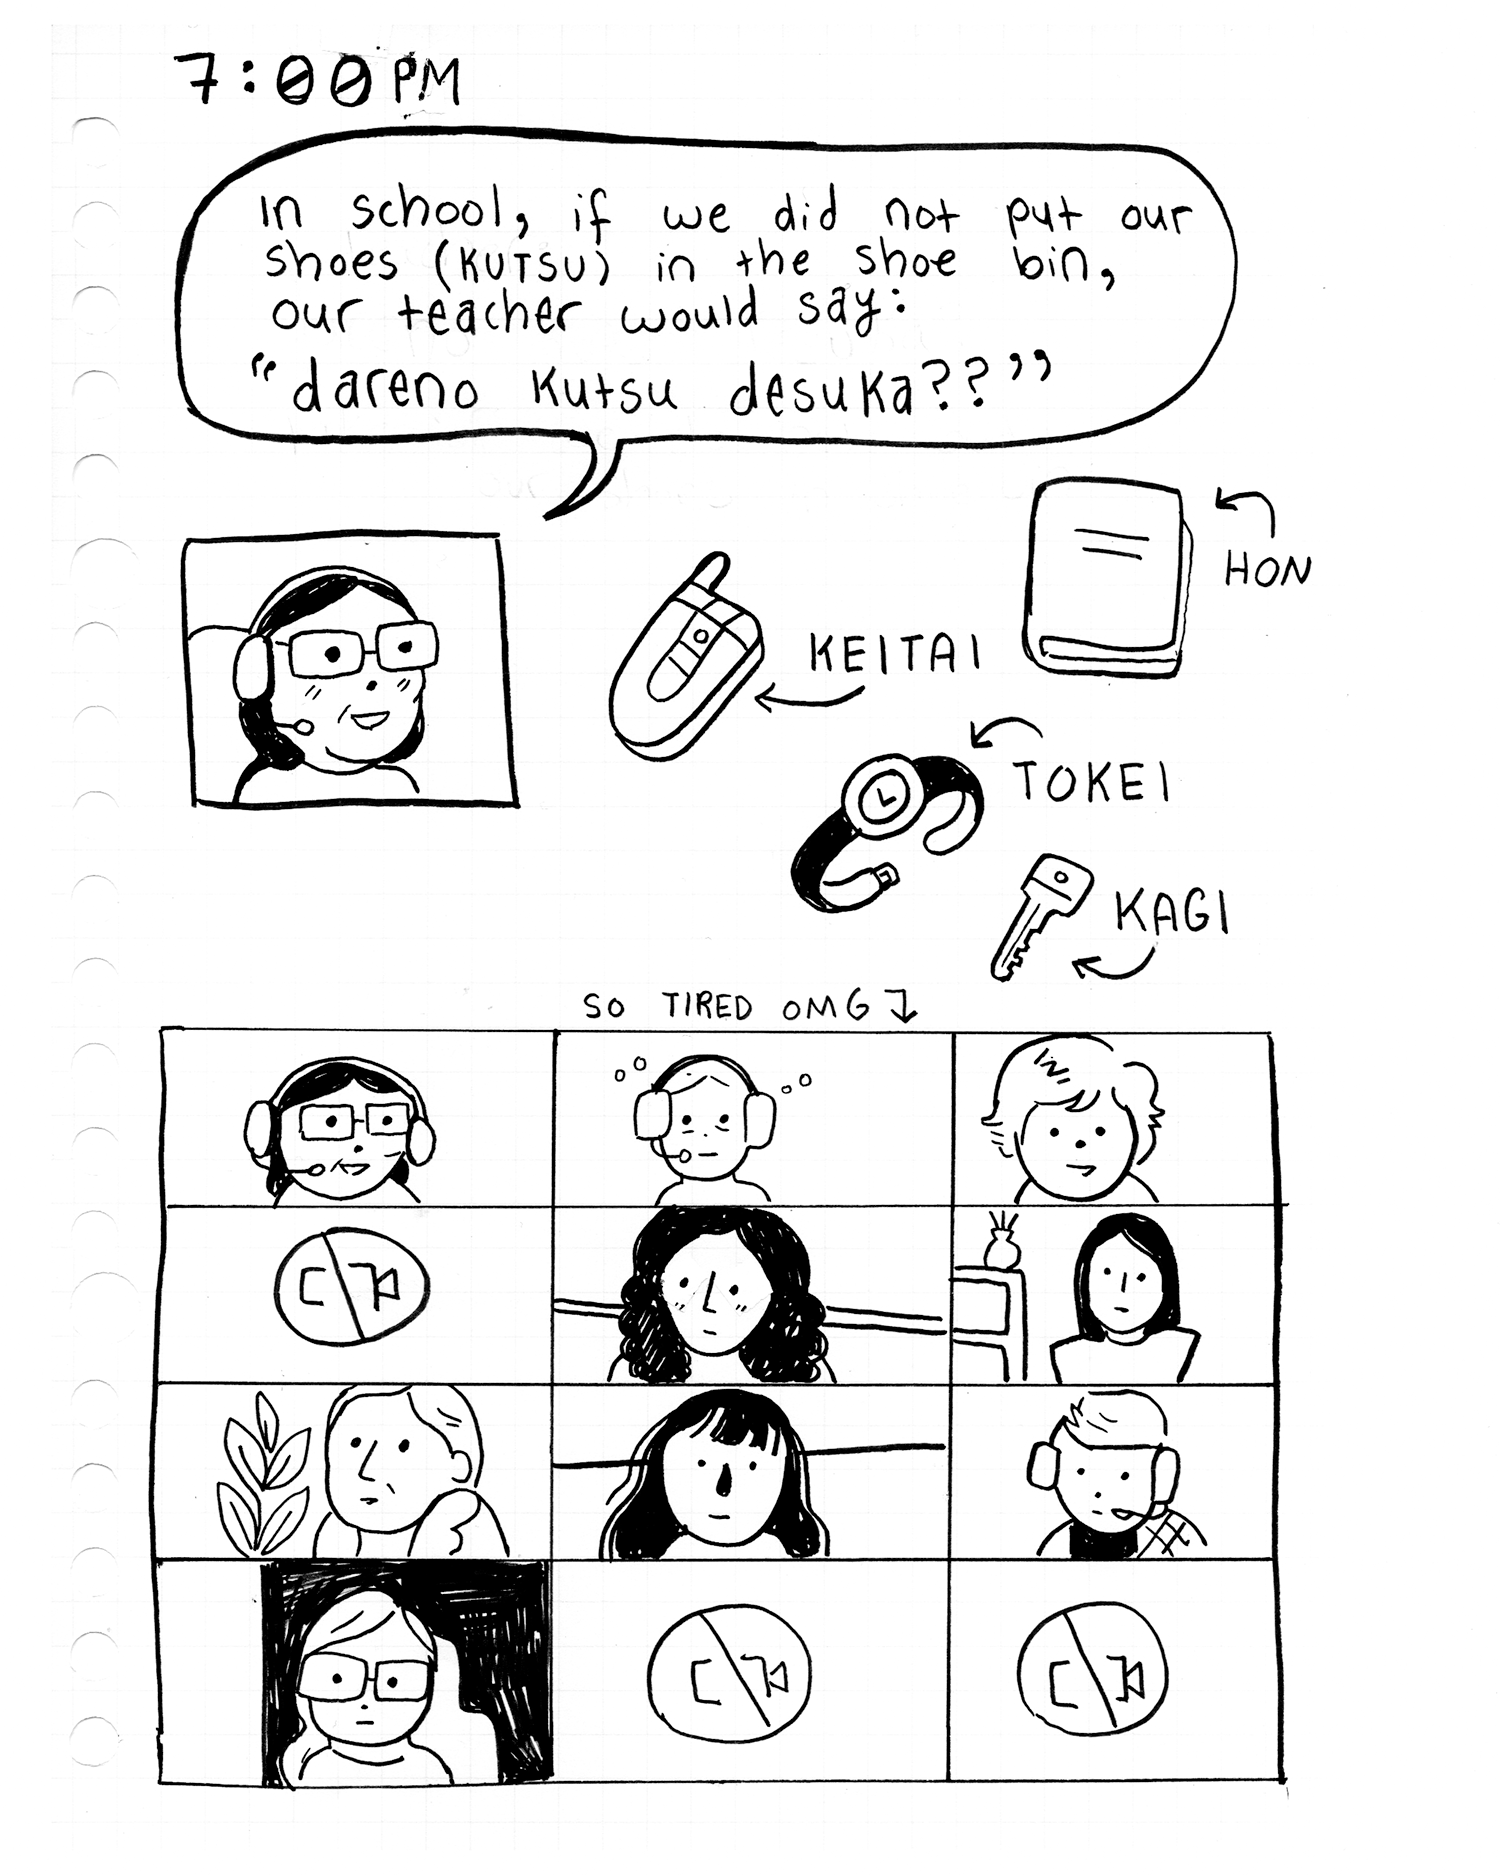 7:00 PM
In school, if we did not put our
shoes (KUTSU) in the shoe bin,
our teacher would say:
"dareno kutsu desuka??"
HON
KEITAI
TOKEI
KAGI
SO TIRED OMG